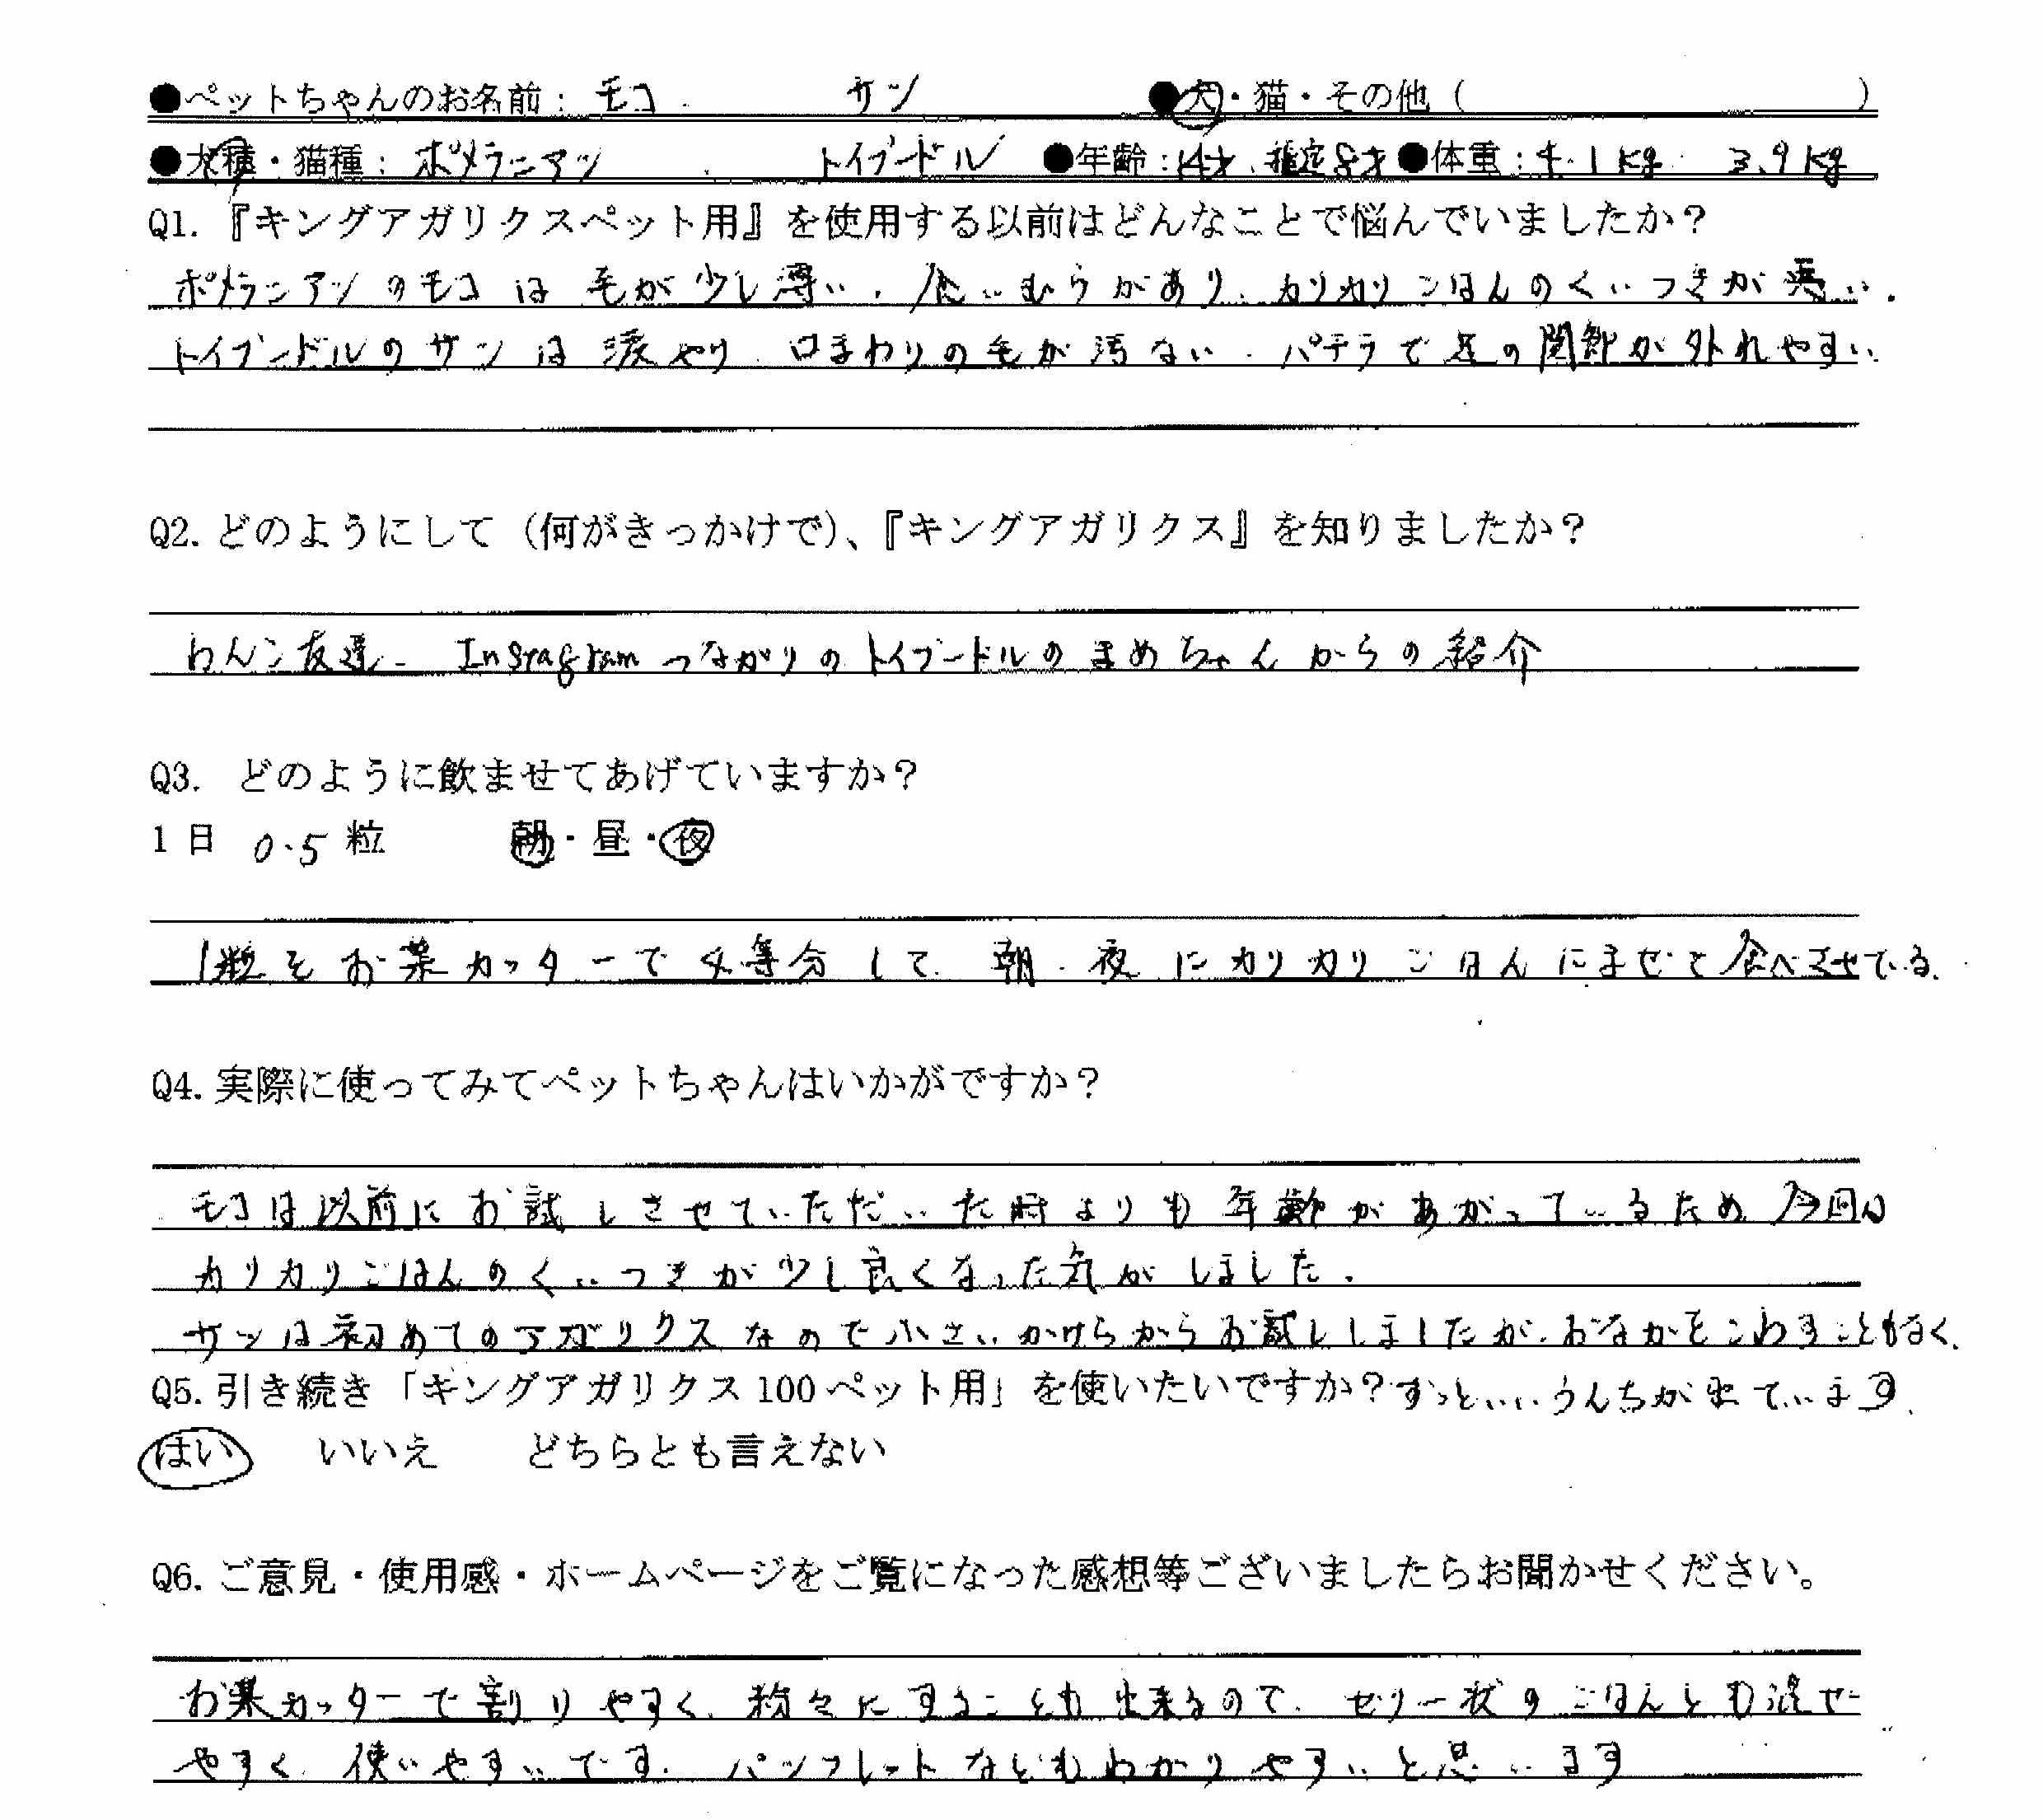 ●ペットちゃんのお名前：モコ． サン ●犬・猫・その他（ ）
●犬種・猫種：ポメラニアン ． トイプードル ●年齢：14才、推定8才 ●体重：4.1kg 3.9kg
Q1.『キングアガリクスペット用』を使用する以前はどんなことで悩んでいましたか？
ポメラニアンのモコは毛が少し薄い．食いむらがあり、カリカリごはんのくいつきが悪い．
トイプードルのサンは涙やけ、口まわりの毛が汚ない．パテラで足の関節が外れやすい
Q2.どのようにして（何がきっかけで）、『キングアガリクス』を知りましたか？
わんこ友達 Instagramつながりのトイプードルのまめちゃんからの紹介
Q3. どのように飲ませてあげていますか？
1日 0.5粒 朝・昼・夜
1粒をお薬カッターで4等分して、朝．夜にカリカリごはんにまぜて食べさせている．
Q4.実際に使ってみてペットちゃんはいかがですか？
モコは以前にお試しさせていただいた時よりも年齢があがっているため今回は
カリカリごはんのくいつきが少し良くなった気がしました．
サンは初めてのアガリクスなので小さいかけらからお試ししましたが、おなかをこわすこともなく、
Q5.引き続き「キングアガリクス100ペット用」を使いたいですか？ずっといいうんちが出ています．
はい いいえ どちらとも言えない
Q6.ご意見・使用感・ホームページをご覧になった感想等ございましたらお聞かせください。
お薬カッターで割りやすく、粉々にすることも出来るので、ゼリー状のごはんとも混ぜ
やすく、使いやすいです．パンフレットなどもわかりやすいと思います